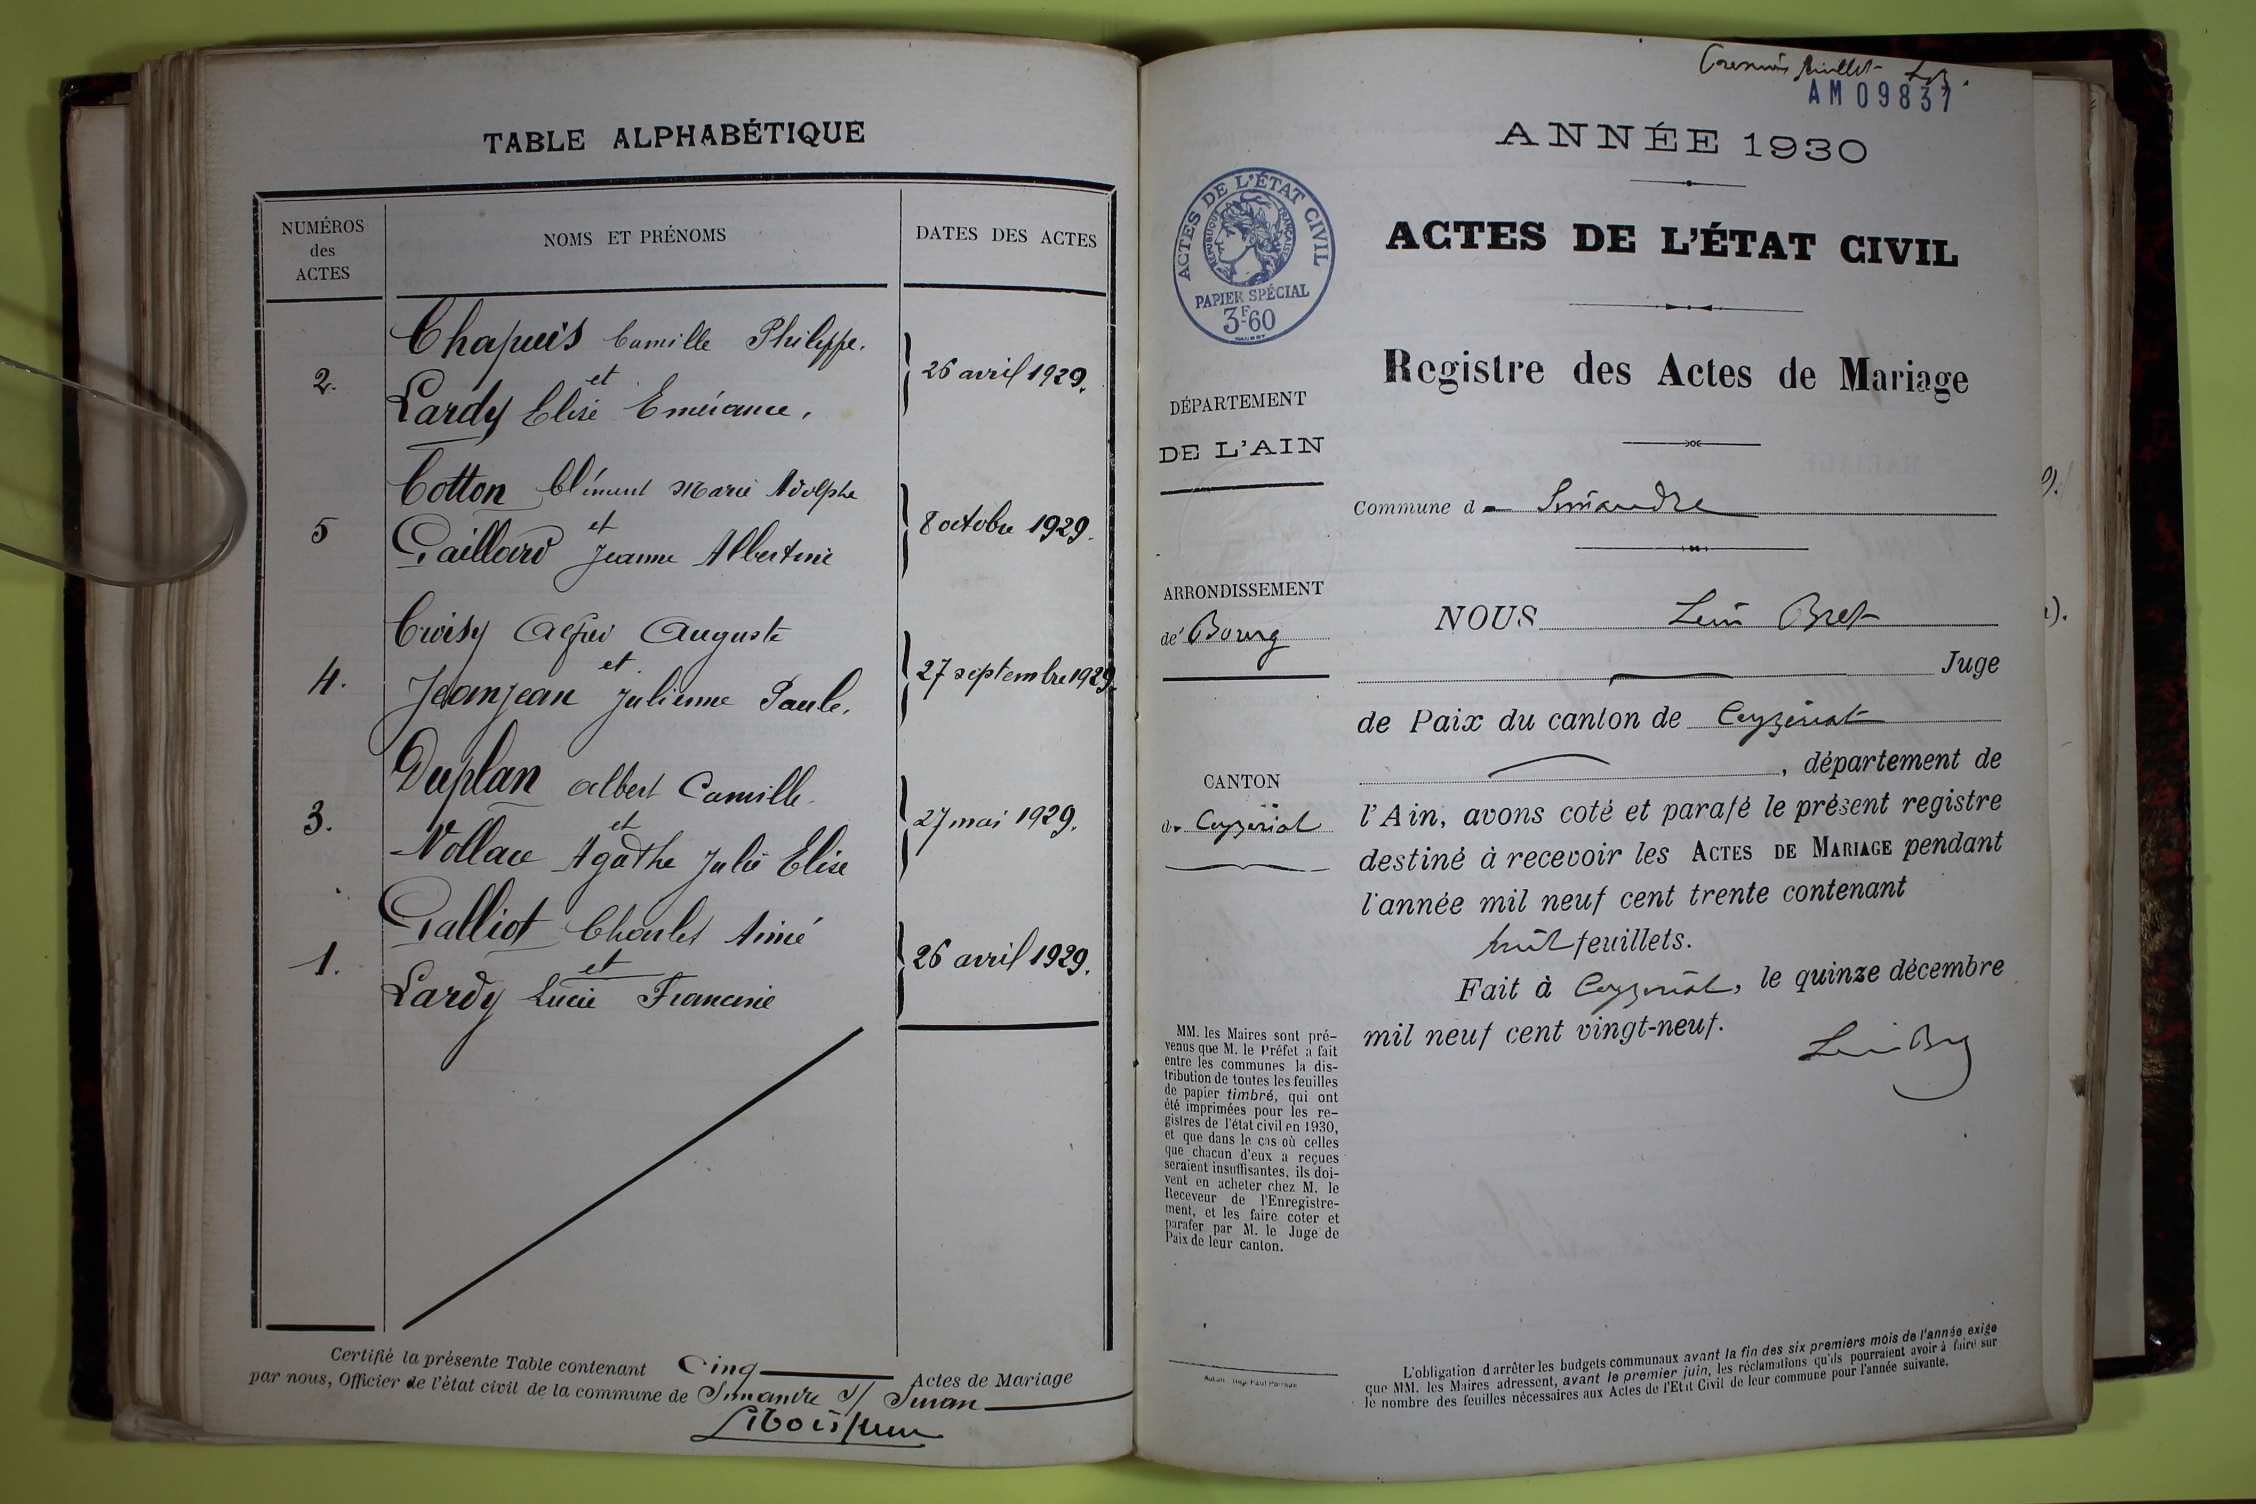 TABLE ALPHABÉTIQUE
NUMÉROS
des
ACTES
NOMS ET PRÉNOMS
DATES DES ACTES
Chapuis Camille Philippe.
2.
et
26 avril 1929.
Lardy Elise Emérance.
Cotton Clément Marie Adolphe
5
et
8 octobre 1929.
Gaillard Jeanne Albertine
Croisy Alfred Auguste
4.
et
27 septembre 1929.
Jeanjean Julienne Paule.
Duplan Albert Camille.
3.
et
27 mai 1929.
Vollace Agathe Julie Elise
Galliot Charles Aimé
1.
et
26 avril 1929.
Lardy Lucie Francine
Certifié la présente Table contenant Cinq Actes de Mariage
par nous, Officier de l'état civil de la commune de Simandre s/ Suran
Premier feuillet
AM09837
ANNÉE 1930
ACTES DE L'ÉTAT CIVIL
RÉPUBLIQUE FRANÇAISE
PAPIER SPÉCIAL
3F60
ACTES DE L'ÉTAT CIVIL
Registre des Actes de Mariage
DÉPARTEMENT
DE L'AIN
Commune d Simandre
ARRONDISSEMENT
de Bourg
NOUS Léon Bret
Juge
de Paix du canton de Ceyzériat
, département de
CANTON
de Ceyzériat
l'Ain, avons coté et parafé le présent registre
destiné à recevoir les ACTES DE MARIAGE pendant
l'année mil neuf cent trente contenant
huit feuillets.
Fait à Ceyzériat, le quinze décembre
mil neuf cent vingt-neuf.
MM. les Maires sont pré-
venus que M. le Préfet a fait
entre les communes la dis-
tribution de toutes les feuilles
de papier timbré, qui ont
été imprimées pour les re-
gistres de l'état civil en 1930,
et que dans le cas où celles
que chacun d'eux a reçues
seraient insuffisantes, ils doi-
vent en acheter chez M. le
Receveur de l'Enregistre-
ment, et les faire coter et
parafer par M. le Juge de
Paix de leur canton.
L'obligation d'arrêter les budgets communaux avant la fin des six premiers mois de l'année exige
que MM. les Maires adressent, avant le premier juin, les réclamations qu'ils pourraient avoir à faire sur
le nombre des feuilles nécessaires aux Actes de l'Etat Civil de leur commune pour l'année suivante.